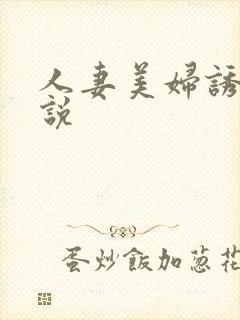 人妻美婦誘
説
蛋炒飯加蔥花